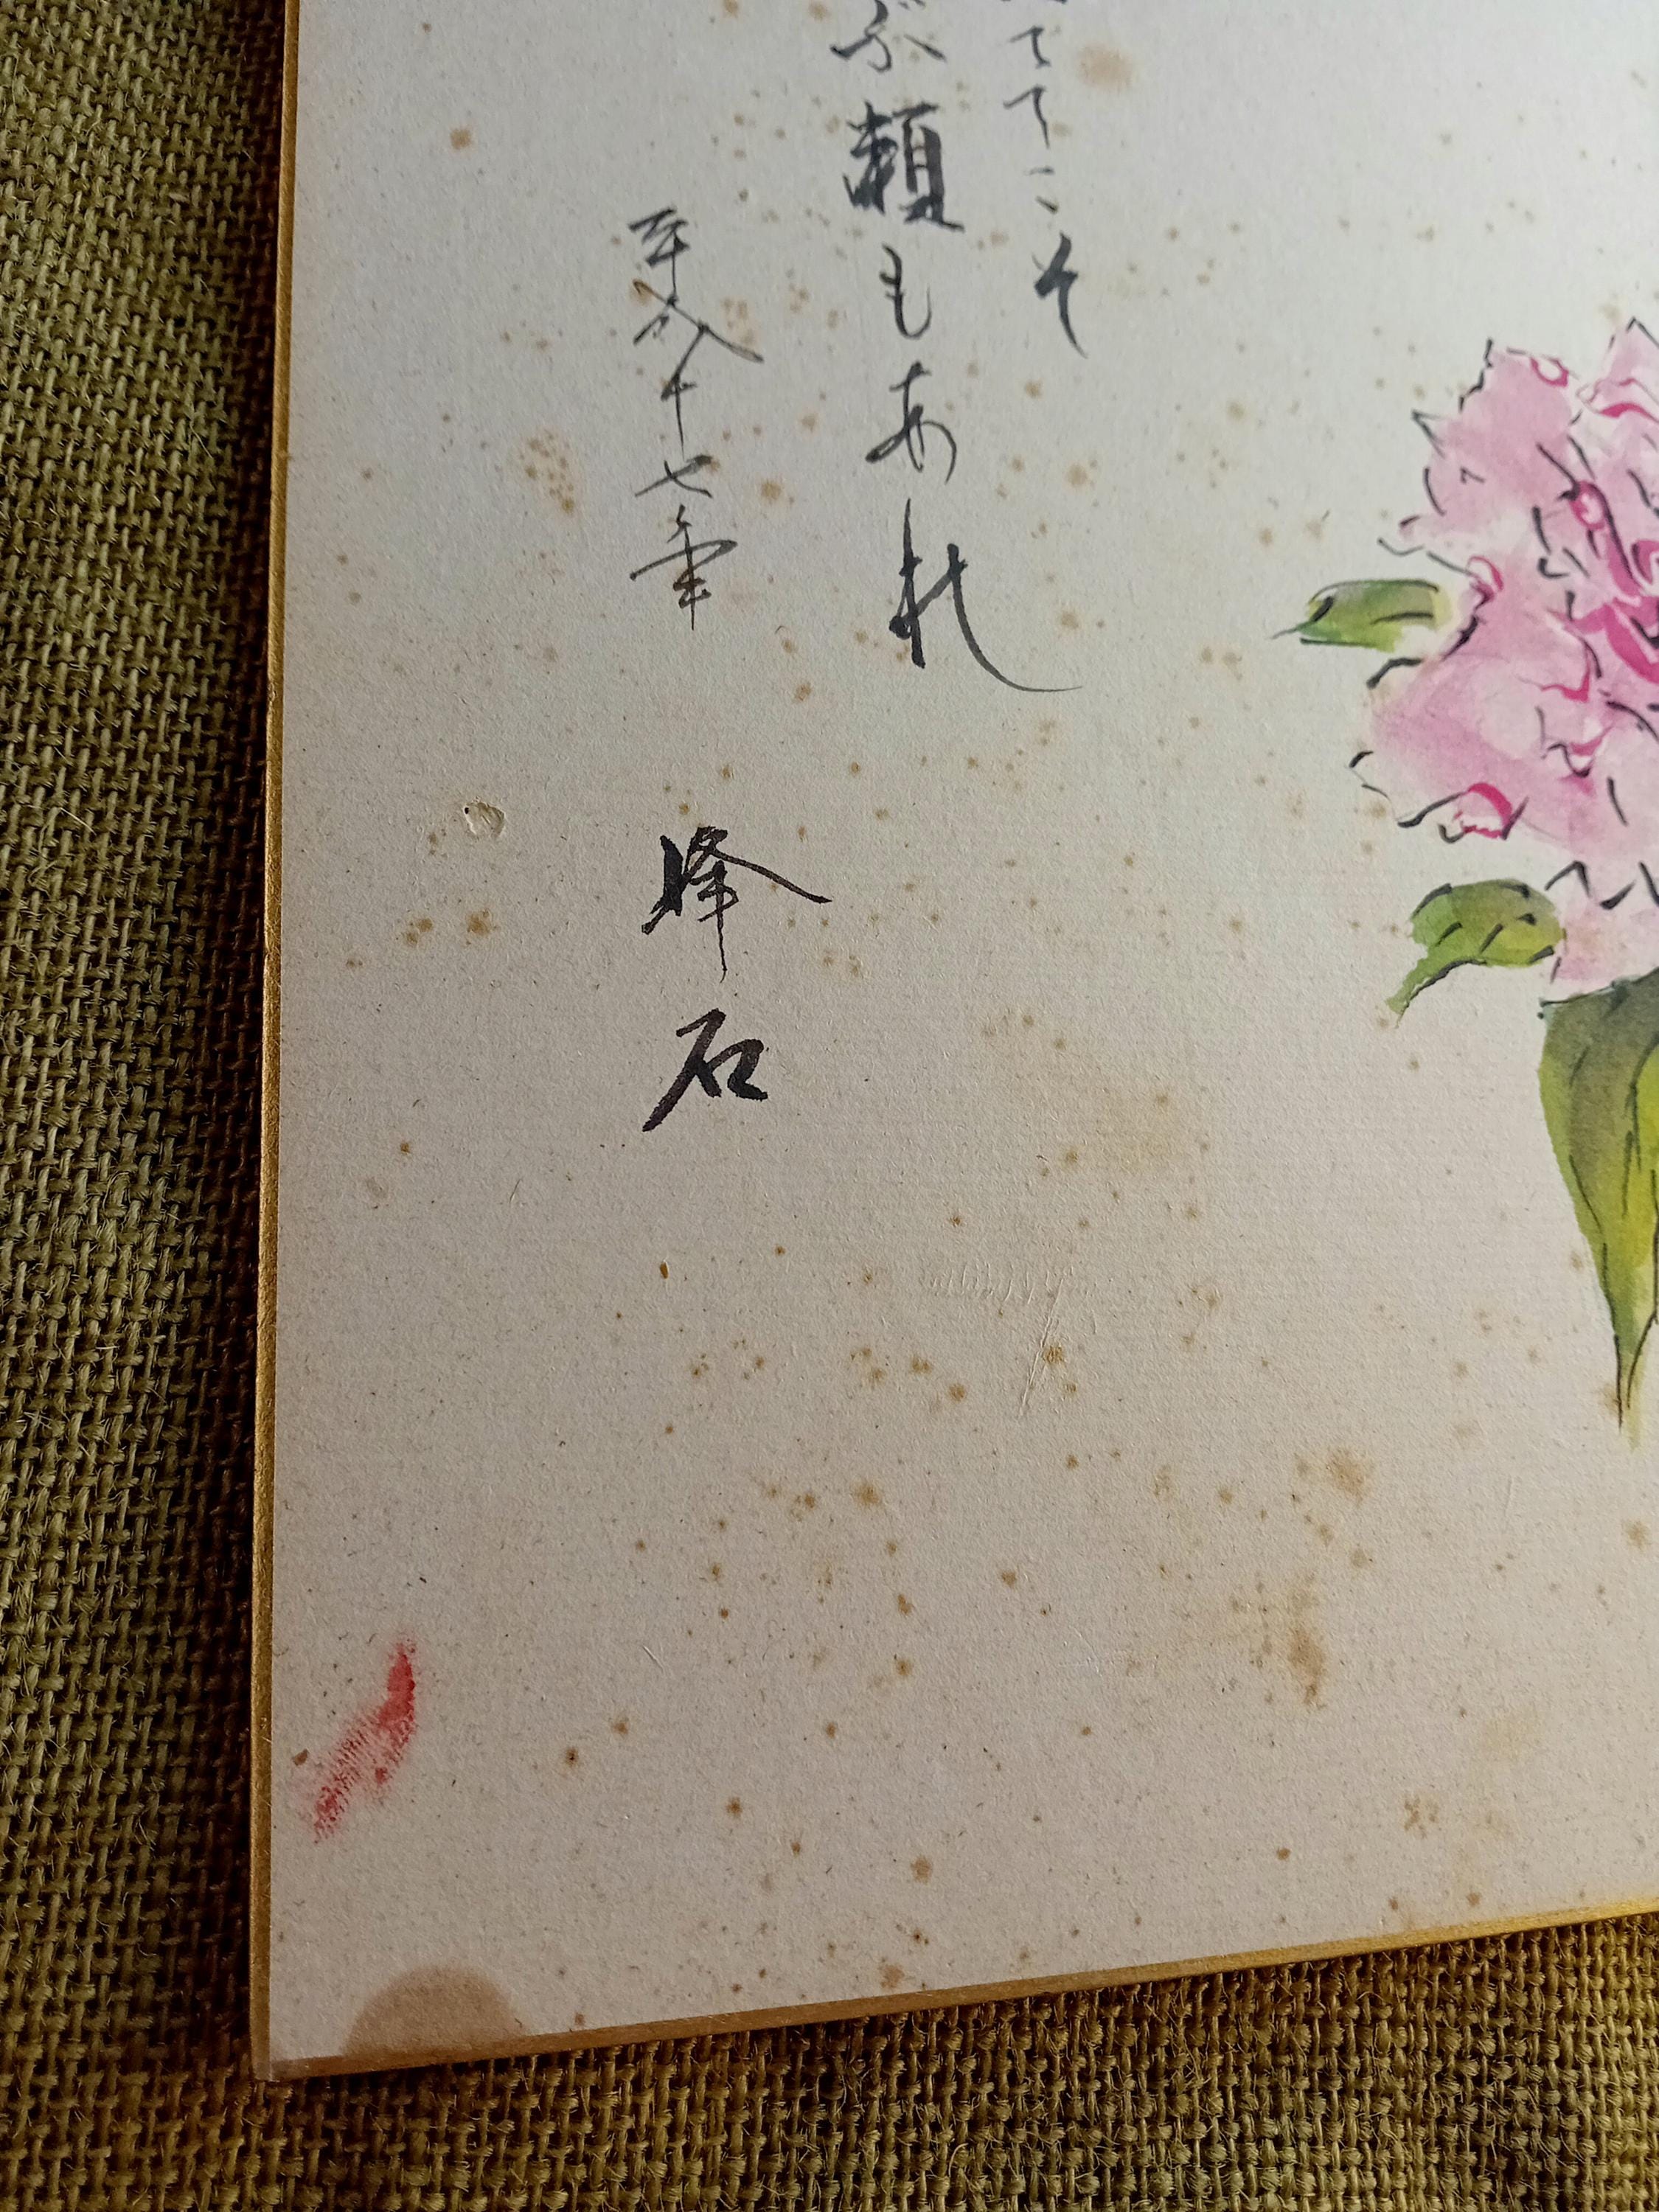 ててこそ
ぶ瀬もあれ
平成十七年
峰石